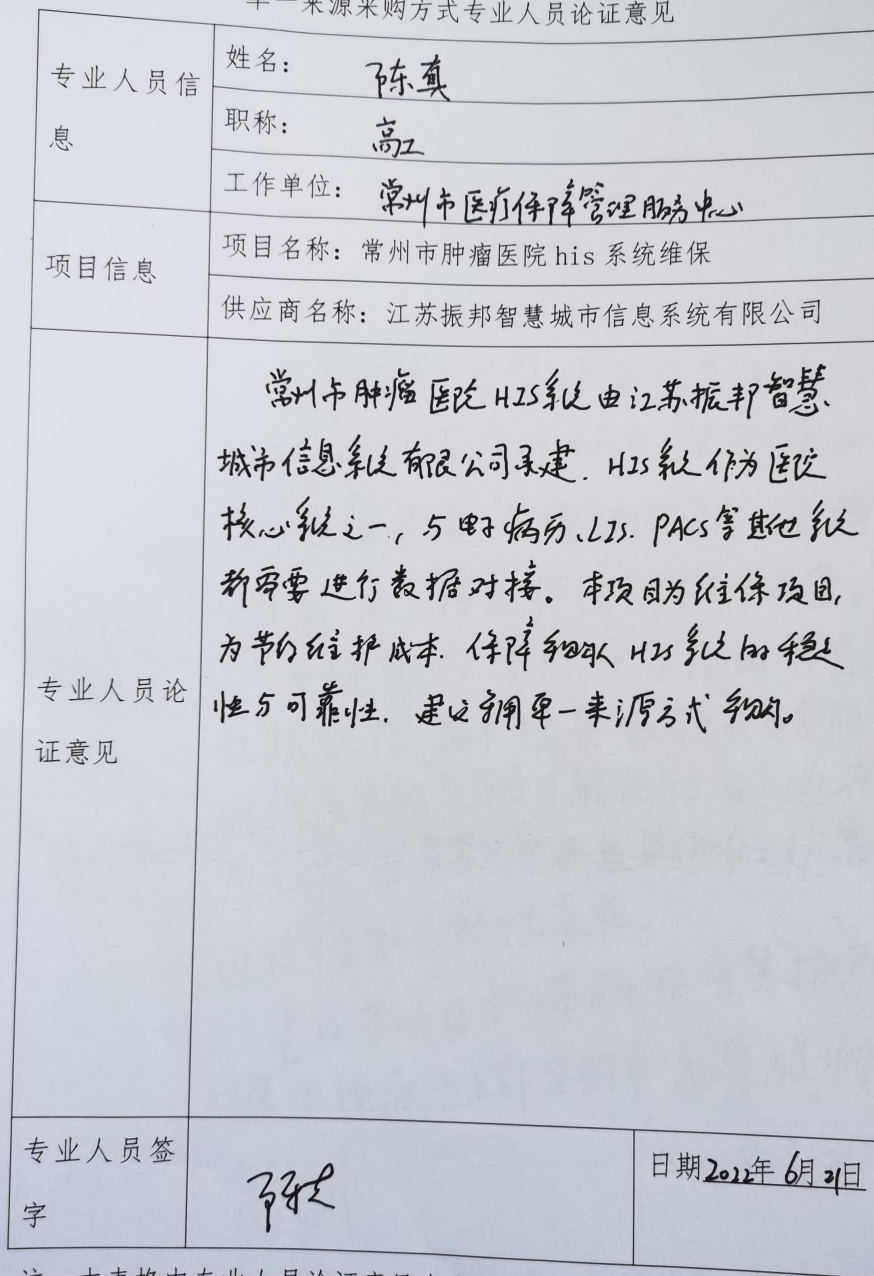 单一来源采购方式专业人员论证意见
专业人员信
息
姓名: 陈真
职称: 高工
工作单位: 常州市医疗保障管理服务中心
项目信息
项目名称: 常州市肿瘤医院his系统维保
供应商名称: 江苏振邦智慧城市信息系统有限公司
专业人员论
证意见
常州市肿瘤医院HIS系统由江苏振邦智慧
城市信息系统有限公司承建. HIS系统作为医院
核心系统之一, 与电子病历、LIS. PACS等其他系统
都需要进行数据对接。本项目为维保项目,
为节约维护成本. 保障 HIS系统的稳定
性与可靠性. 建议采用单一来源方式采购。
专业人员签
字
日期2022年6月21日